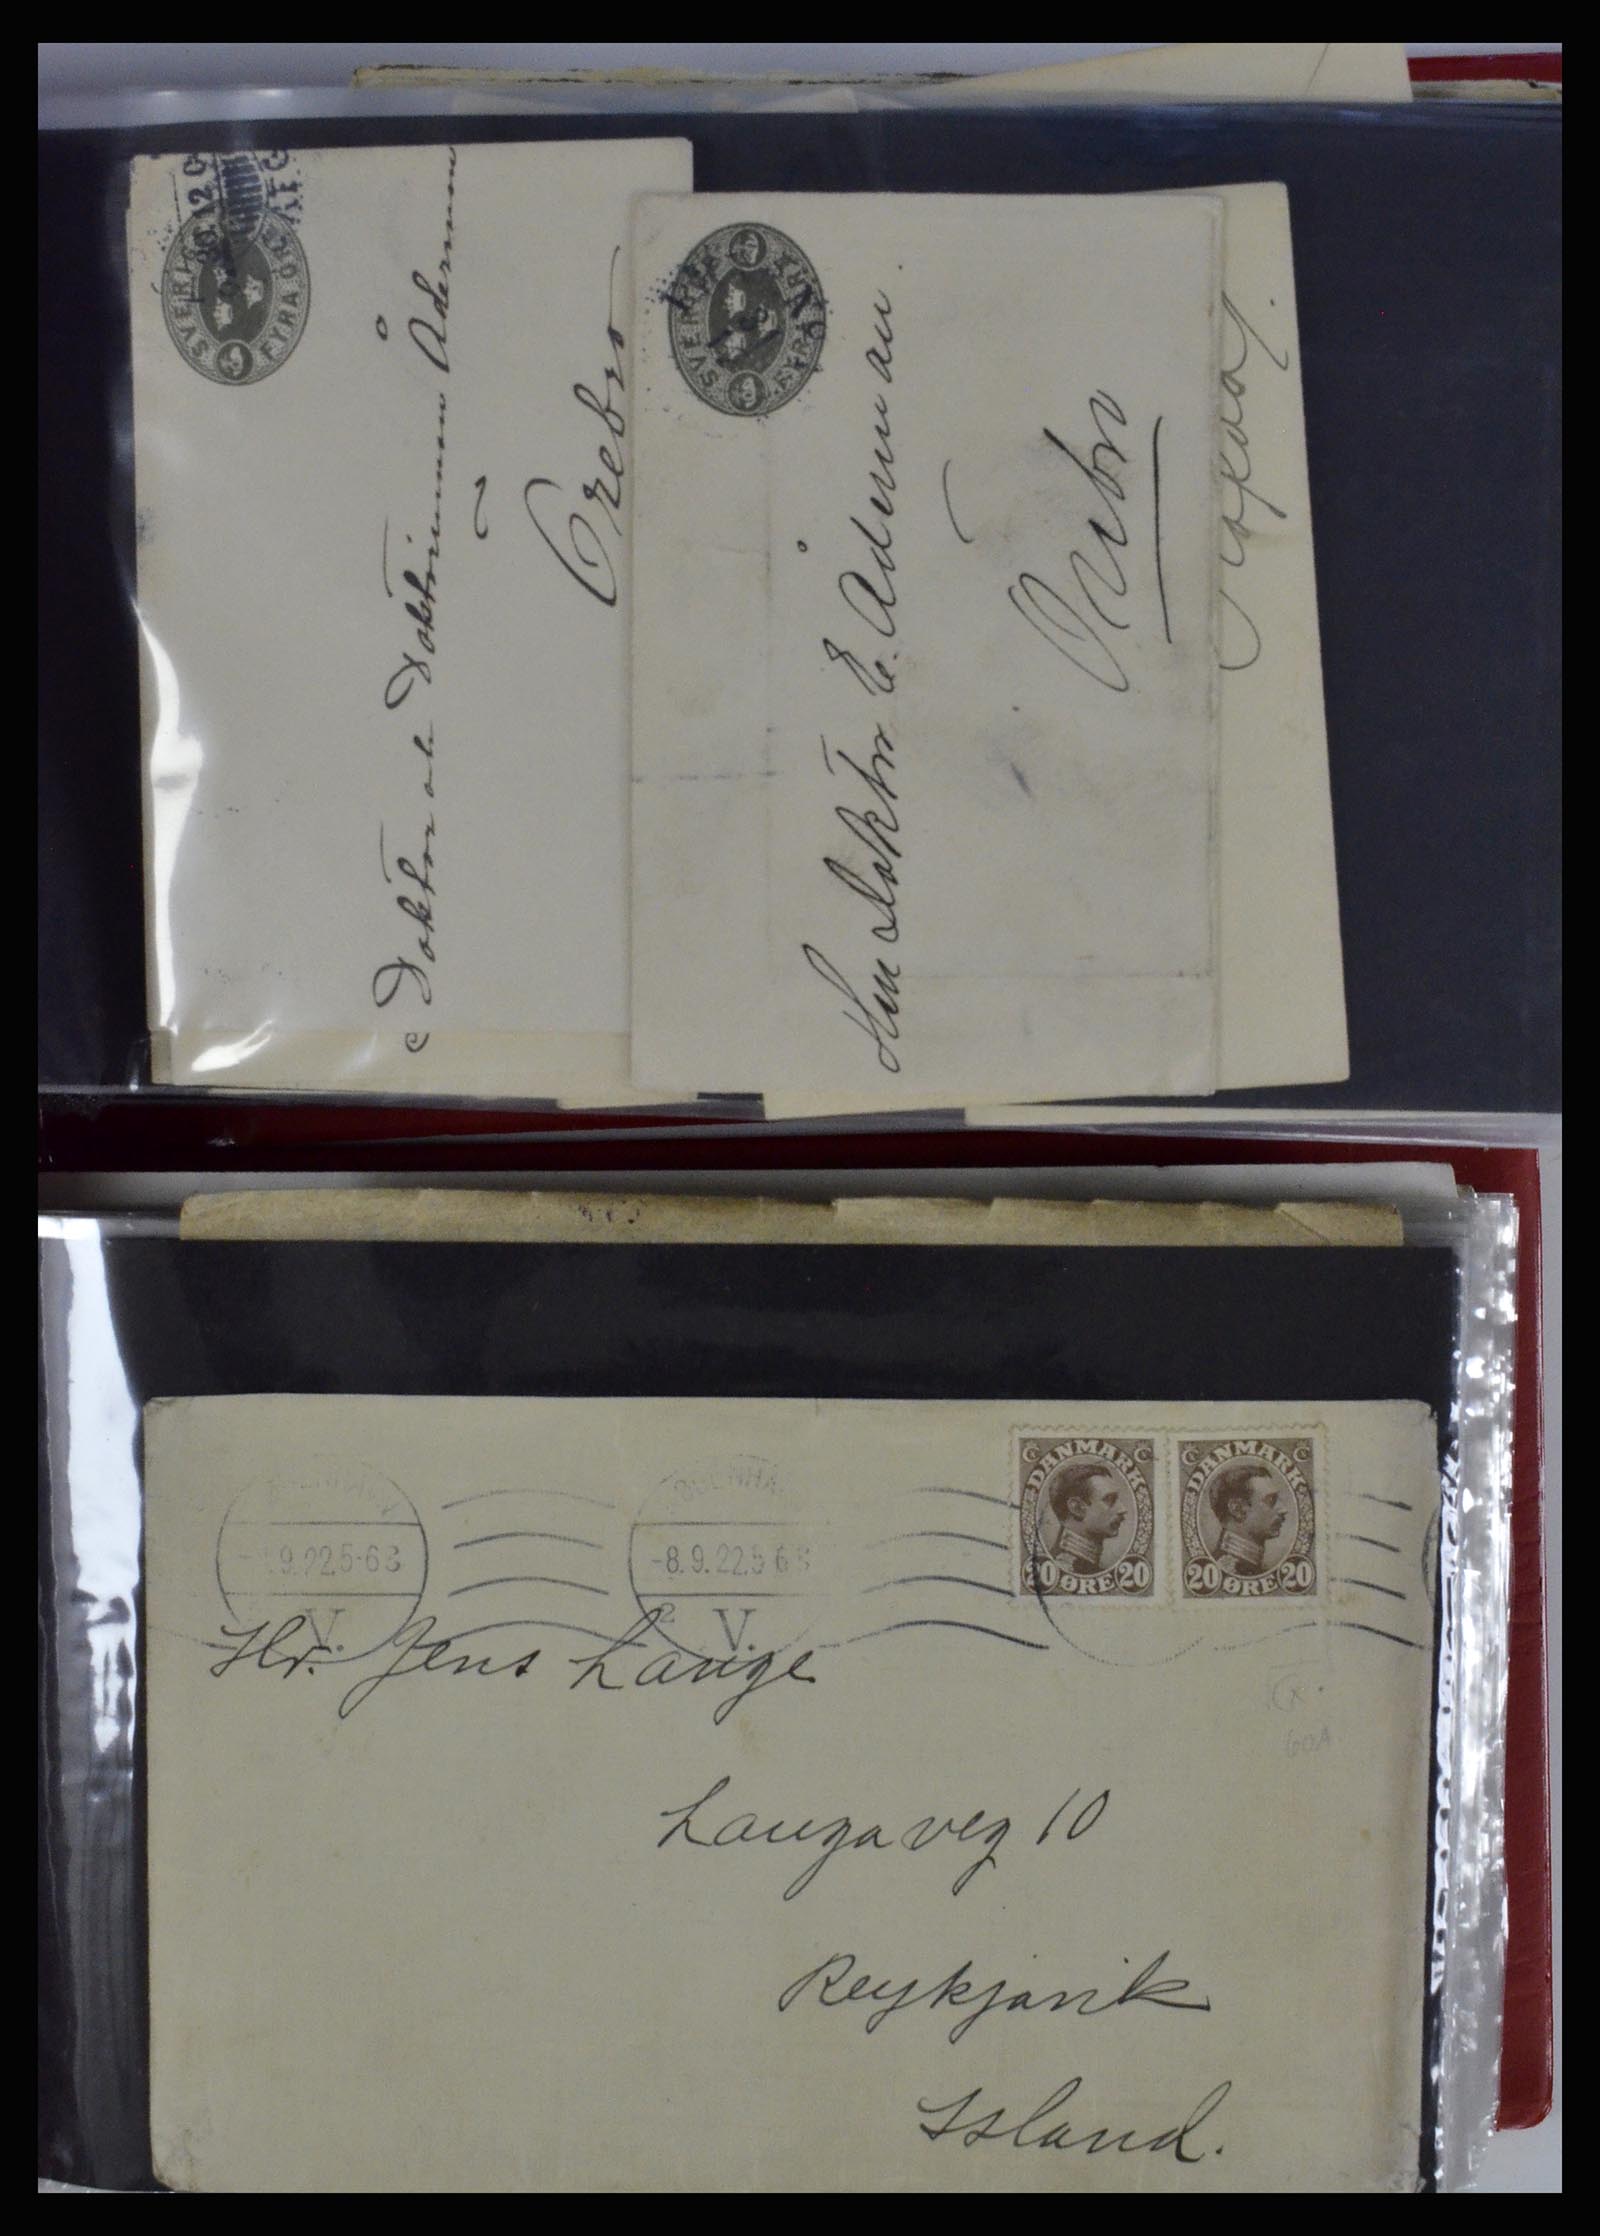 SVERIGE
FYRA ÖRE
30.12
Doktor och Doktorinnan Åderman
Örebro
SVERIGE
FYRA ÖRE
Herr Doktor E. Åderman
Örebro
DANMARK
20 ØRE 20
DANMARK
20 ØRE 20
9.22.5-6
-8.9.22.5 6
V.
2 V.
Hr. Jens Lange
Laugaveg 10
Reykjavik
Island.
60A